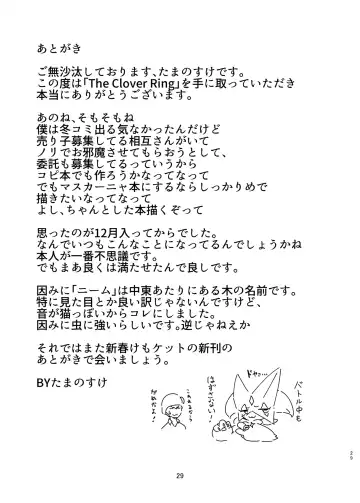 あとがき
ご無沙汰しております、たまのすけです。
この度は「The Clover Ring」を手に取っていただき
本当にありがとうございます。
あのね、そもそもね
僕は冬コミ出る気なかったんだけど
売り子募集してる相互さんがいて
ノリでお邪魔させてもらおうとして、
委託も募集してるっていうから
コピ本でも作ろうかなってなって
でもマスカーニャ本にするならしっかりめで
描きたいなってなって
よし、ちゃんとした本描くぞって
思ったのが12月入ってからでした。
なんでいつもこんなことになってるんでしょうかね
本人が一番不思議です。
でもまあ良くは満たせたんで良しです。
因みに「ニーム」は中東あたりにある木の名前です。
特に見た目とか良い訳じゃないんですけど、
音が猫っぽいからコレにしました。
因みに虫に強いらしいです。逆じゃねえか
それではまた新春けもケットの新刊の
あとがきで会いましょう。
BYたまのすけ
ドヤァ…
バトル中も
はずさない!
29
29